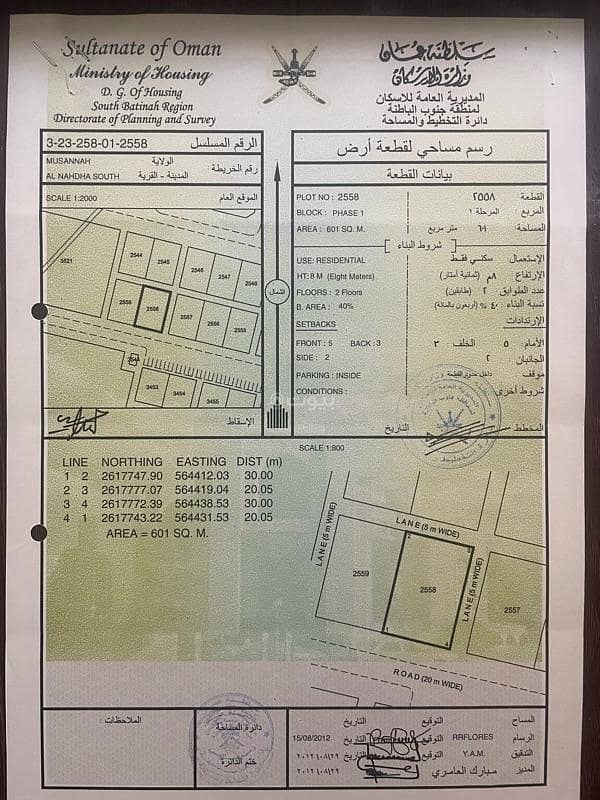 Sultanate of Oman
Ministry of Housing
D. G. Of Housing
South Batinah Region
Directorate of Planning and Survey
سلطنة عمان
وزارة الاسكان
المديرية العامة للاسكان
لمنطقة جنوب الباطنة
دائرة التخطيط والمساحة
3-23-258-01-2558 الرقم المسلسل
MUSANNAH الولاية
AL NAHDHA SOUTH المدينة - القرية
رقم الخريطة:
SCALE 1:2000 الموقع العام
3521
2544
2545
2546
2547
2548
2559
2558
2557
2556
2555
3453
3454
3455
الإسقاط
الشمال
رسم مساحي لقطعة أرض
بيانات القطعة
PLOT NO : 2558 ٢٥٥٨ القطعة
BLOCK : PHASE 1 المرحلة ١ المربع
AREA : 601 SQ. M. متر مربع ٦٠١ المساحة
شروط البناء
USE: RESIDENTIAL سكني فقط الإستعمال:
HT: 8 M (Eight Meters) ٨م (ثمانية أمتار) الإرتفاع
FLOORS : 2 Floors ٢ (طابقين) عدد الطوابق
B. AREA : 40% ٤٠ % (أربعون بالمائة) نسبة البناء
SETBACKS الإرتدادات
FRONT : 5 BACK : 3 ٣ الخلف ٥ الأمام
SIDE : 2 ٢ الجانبان
PARKING : INSIDE داخل حدود القطعة موقف
CONDITIONS : شروط أخرى
التاريخ المخطط
SCALE 1:800
LINE NORTHING EASTING DIST (m)
1 2 2617747.90 564412.03 30.00
2 3 2617777.07 564419.04 20.05
3 4 2617772.39 564438.53 30.00
4 1 2617743.22 564431.53 20.05
AREA = 601 SQ. M.
LANE (5 m WIDE)
LANE (5 m WIDE)
LANE (5 m WIDE)
2559
2558
2557
ROAD (20 m WIDE)
الملاحظات:
دائرة المساحة
ختم الدائرة
التاريخ التوقيع المساح
15/08/2012 التاريخ التوقيع RRFLORES الرسام
٢٠١٢/٠٨/٢٩ التاريخ التوقيع Y.A.M. التدقيق
٢٠١٢/٠٨/٢٩ مبارك العامري المدير